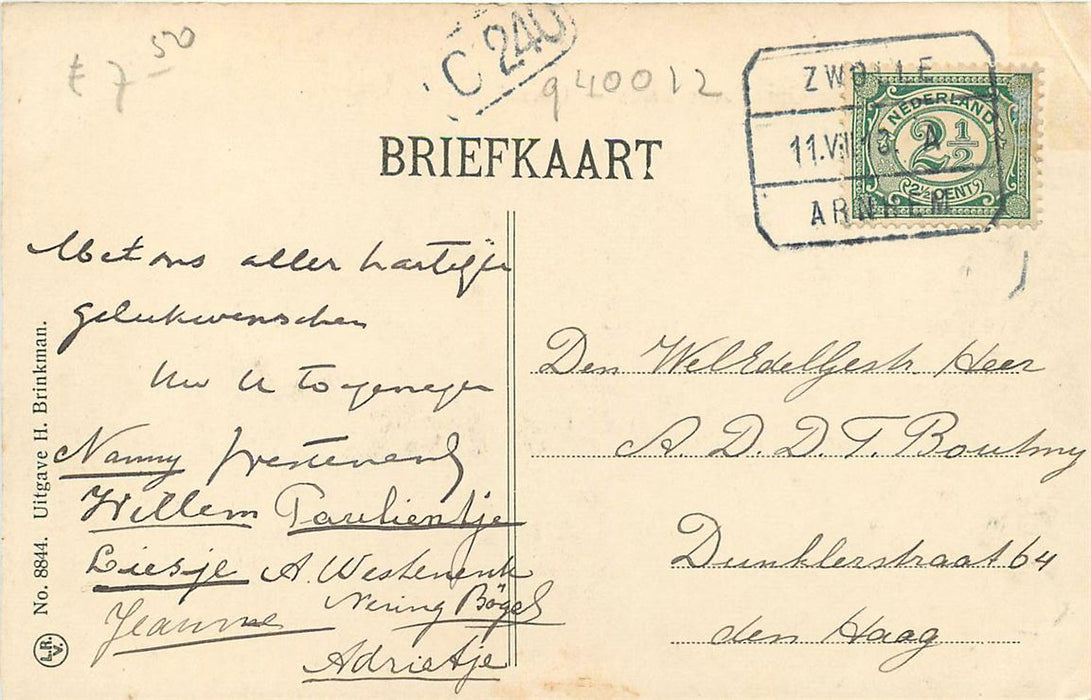 £ 7 50
C 240
940012
ZWOLLE
11.VII.13. A
ARNHEM
NEDERLAND
2½
2½ CENT
BRIEFKAART
Met ons aller hartelijke
gelukwenschen
Uw U toegenegen
Nanny Westenenk
Willem Paulientje
Liesje A. Westenenk
Nering Bögel
Jeanne
Adrietje
Den WelEdelGestr. Heer
A. D. D. T. Boutmy
Dunklerstraat 64
den Haag
No. 8844. Uitgave H. Brinkman.
L.R.
V.